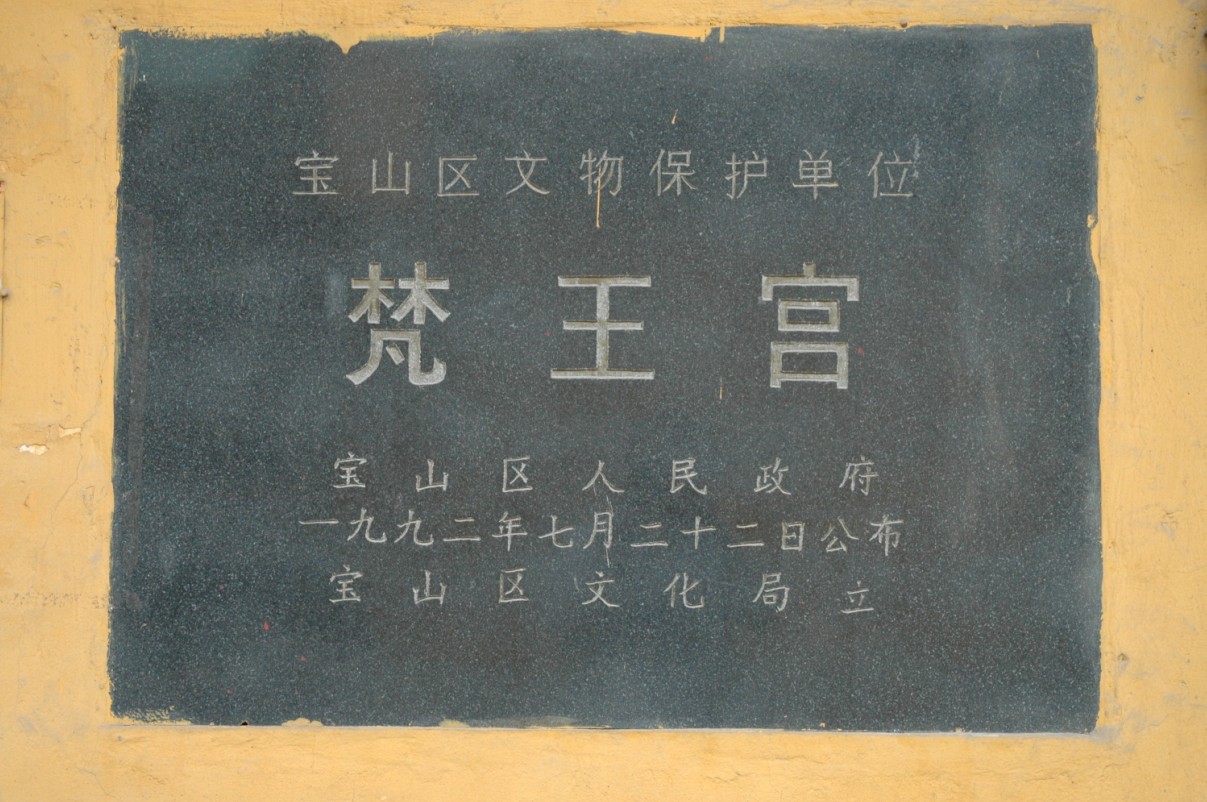 宝山区文物保护单位
梵王宫
宝山区人民政府
一九九二年七月二十二日公布
宝山区文化局立